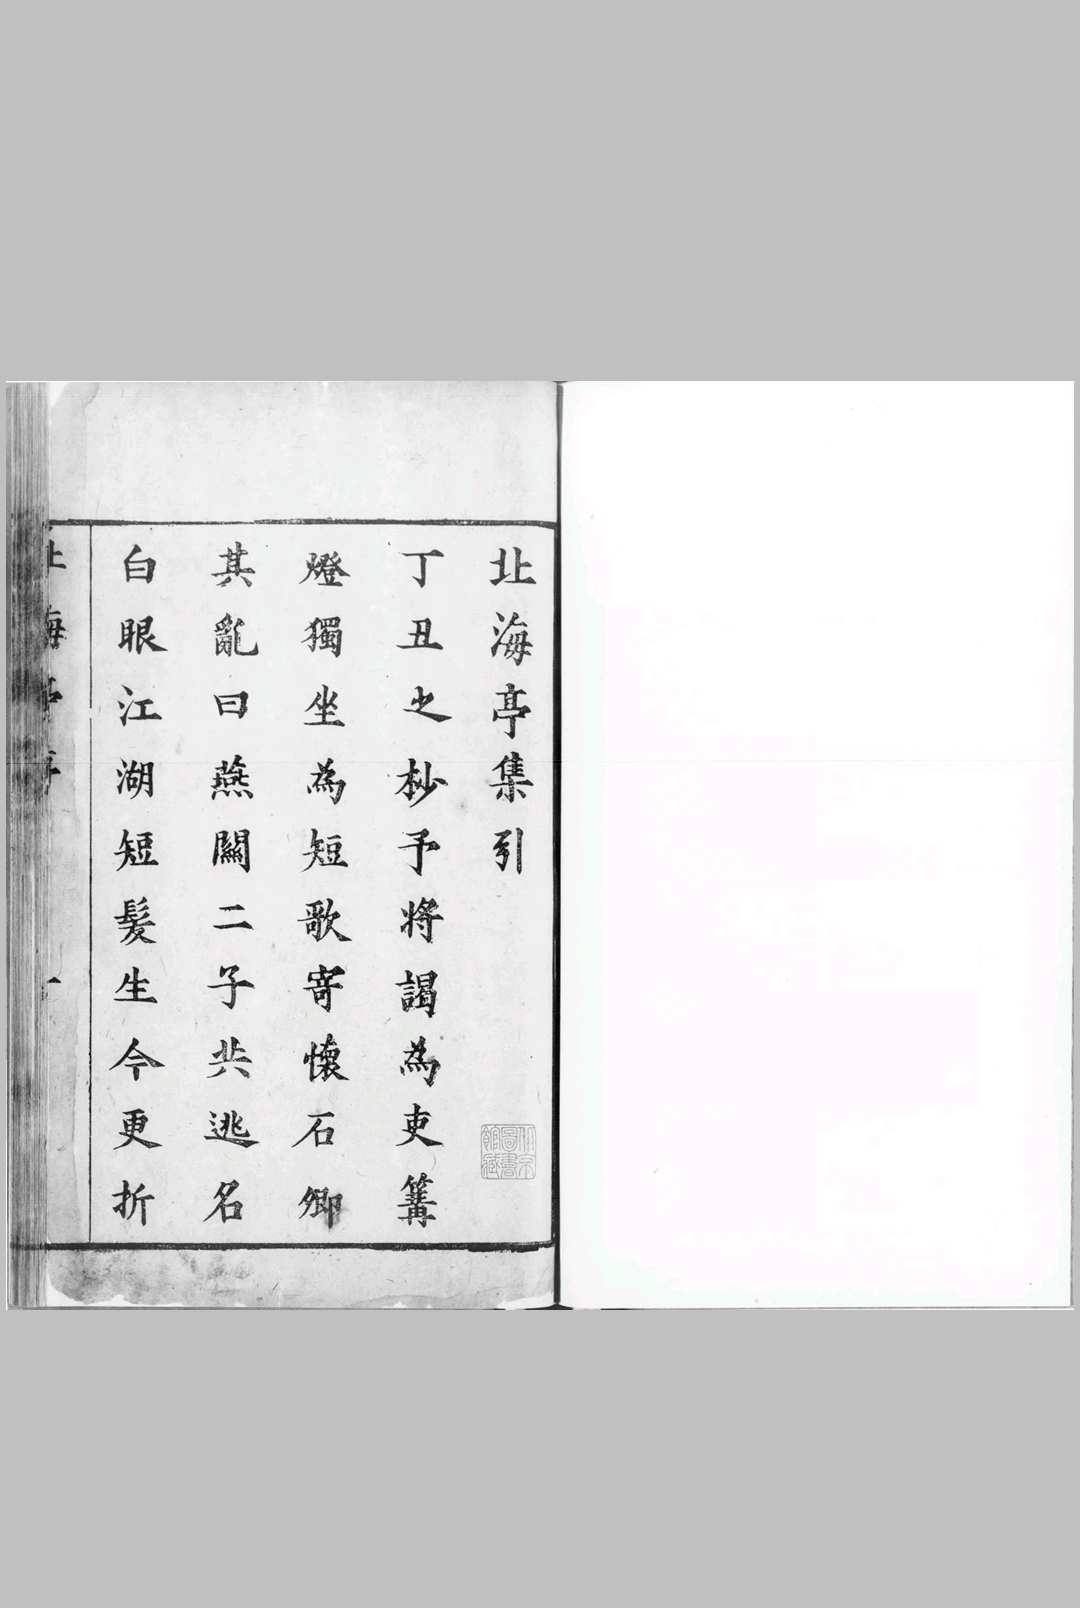 北海亭集引
丁丑之杪予將謁為吏篝
燈獨坐為短歌寄懷石卿
其亂曰燕關二子共逃名
白眼江湖短髮生今更折
北海亭序
一